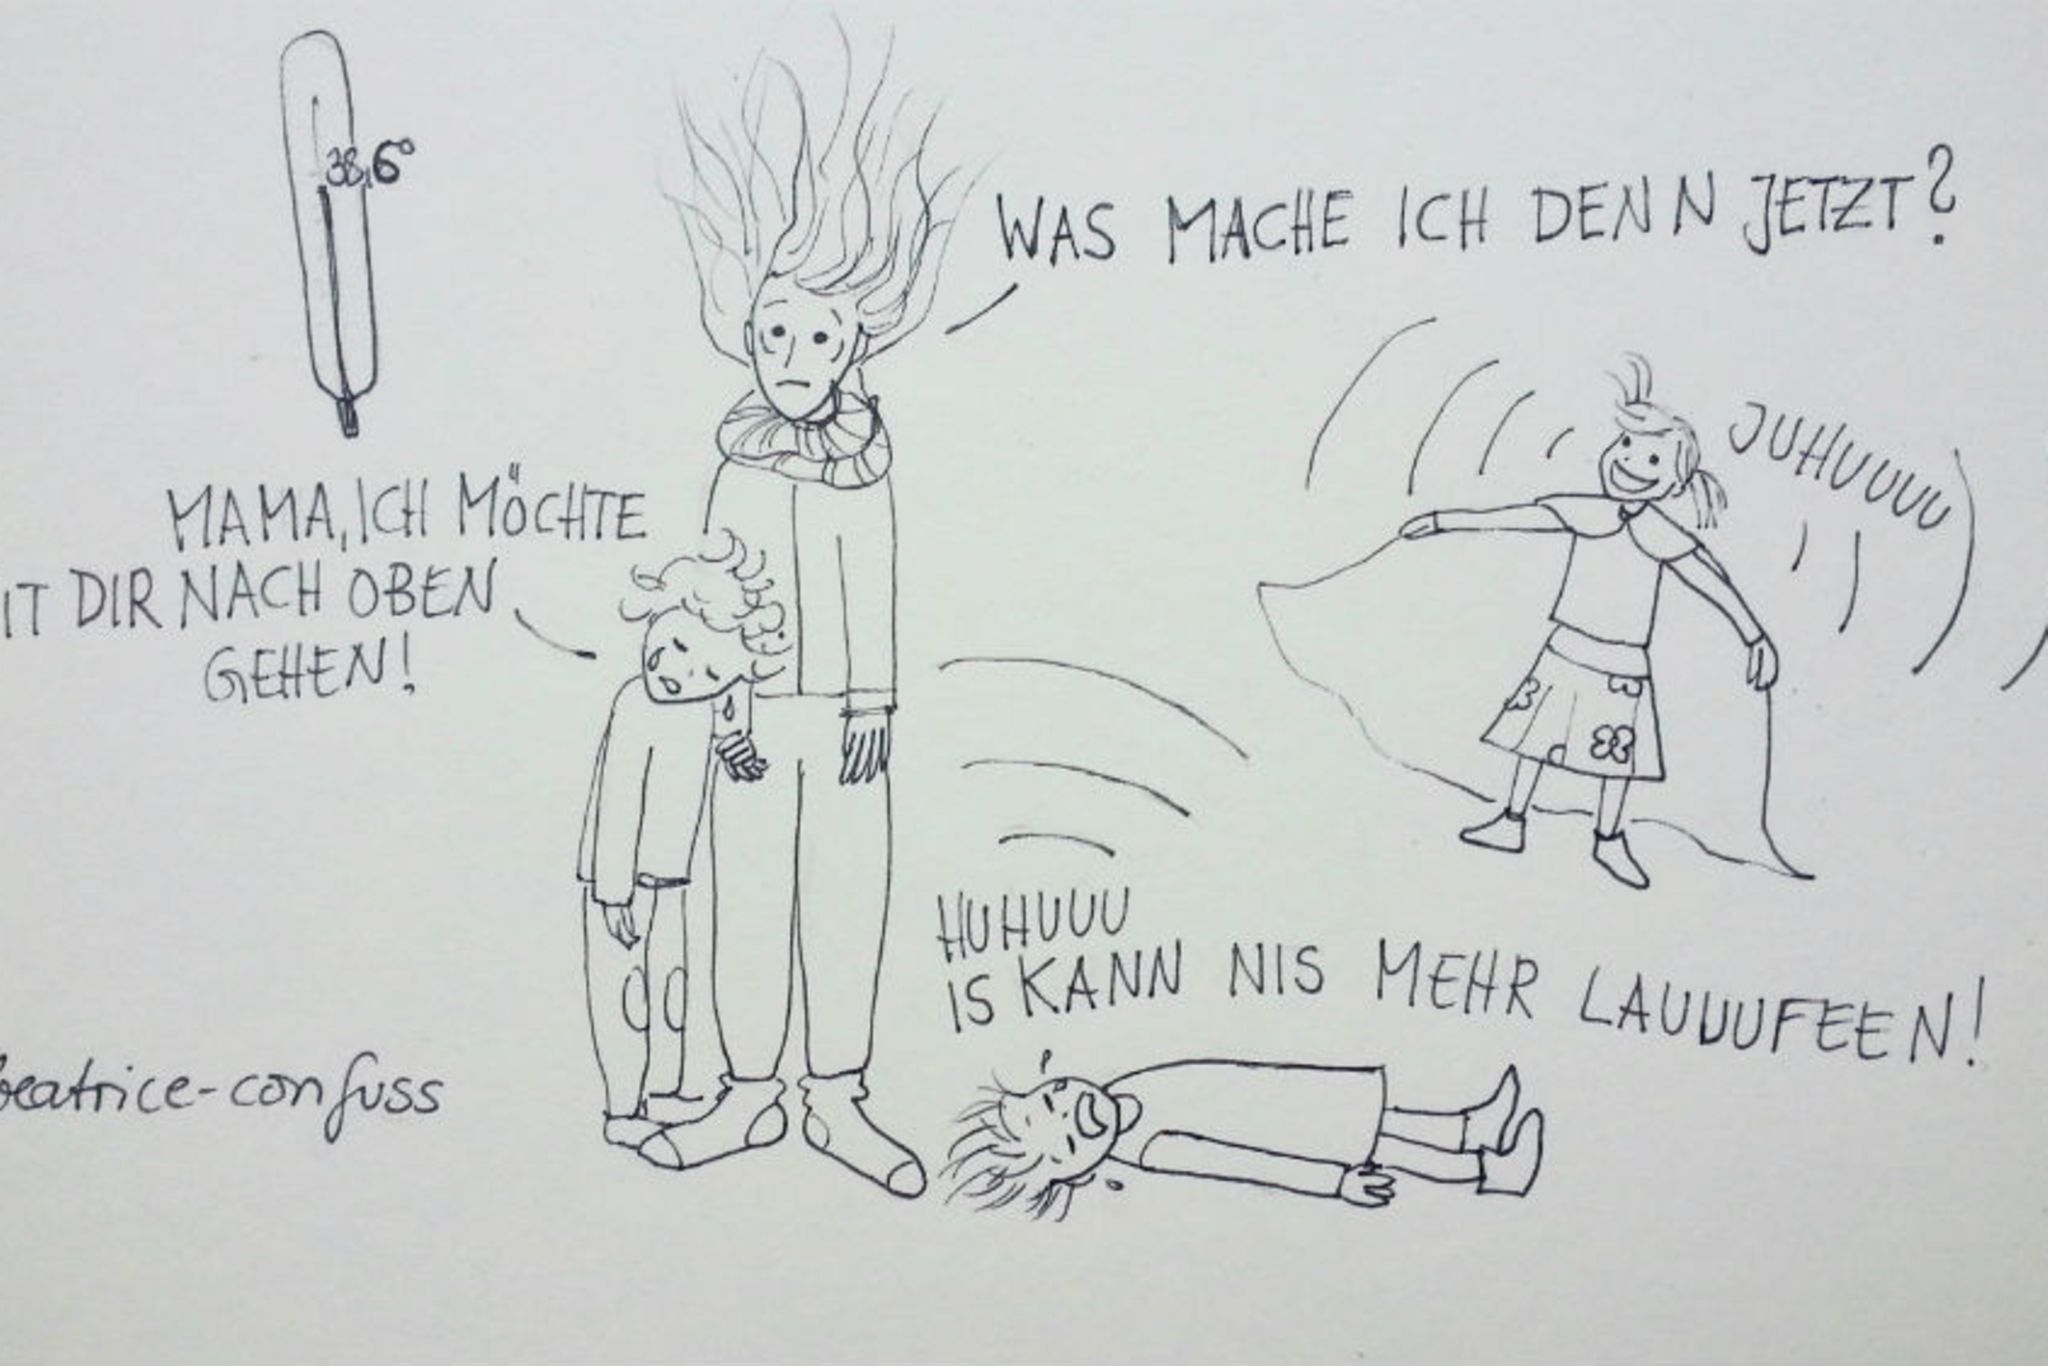 38,6°
WAS MACHE ICH DENN JETZT?
JUHUUUU
MAMA, ICH MÖCHTE
IT DIR NACH OBEN
GEHEN!
HUHUUU
IS KANN NIS MEHR LAUUUFEEN!
beatrice-confuss